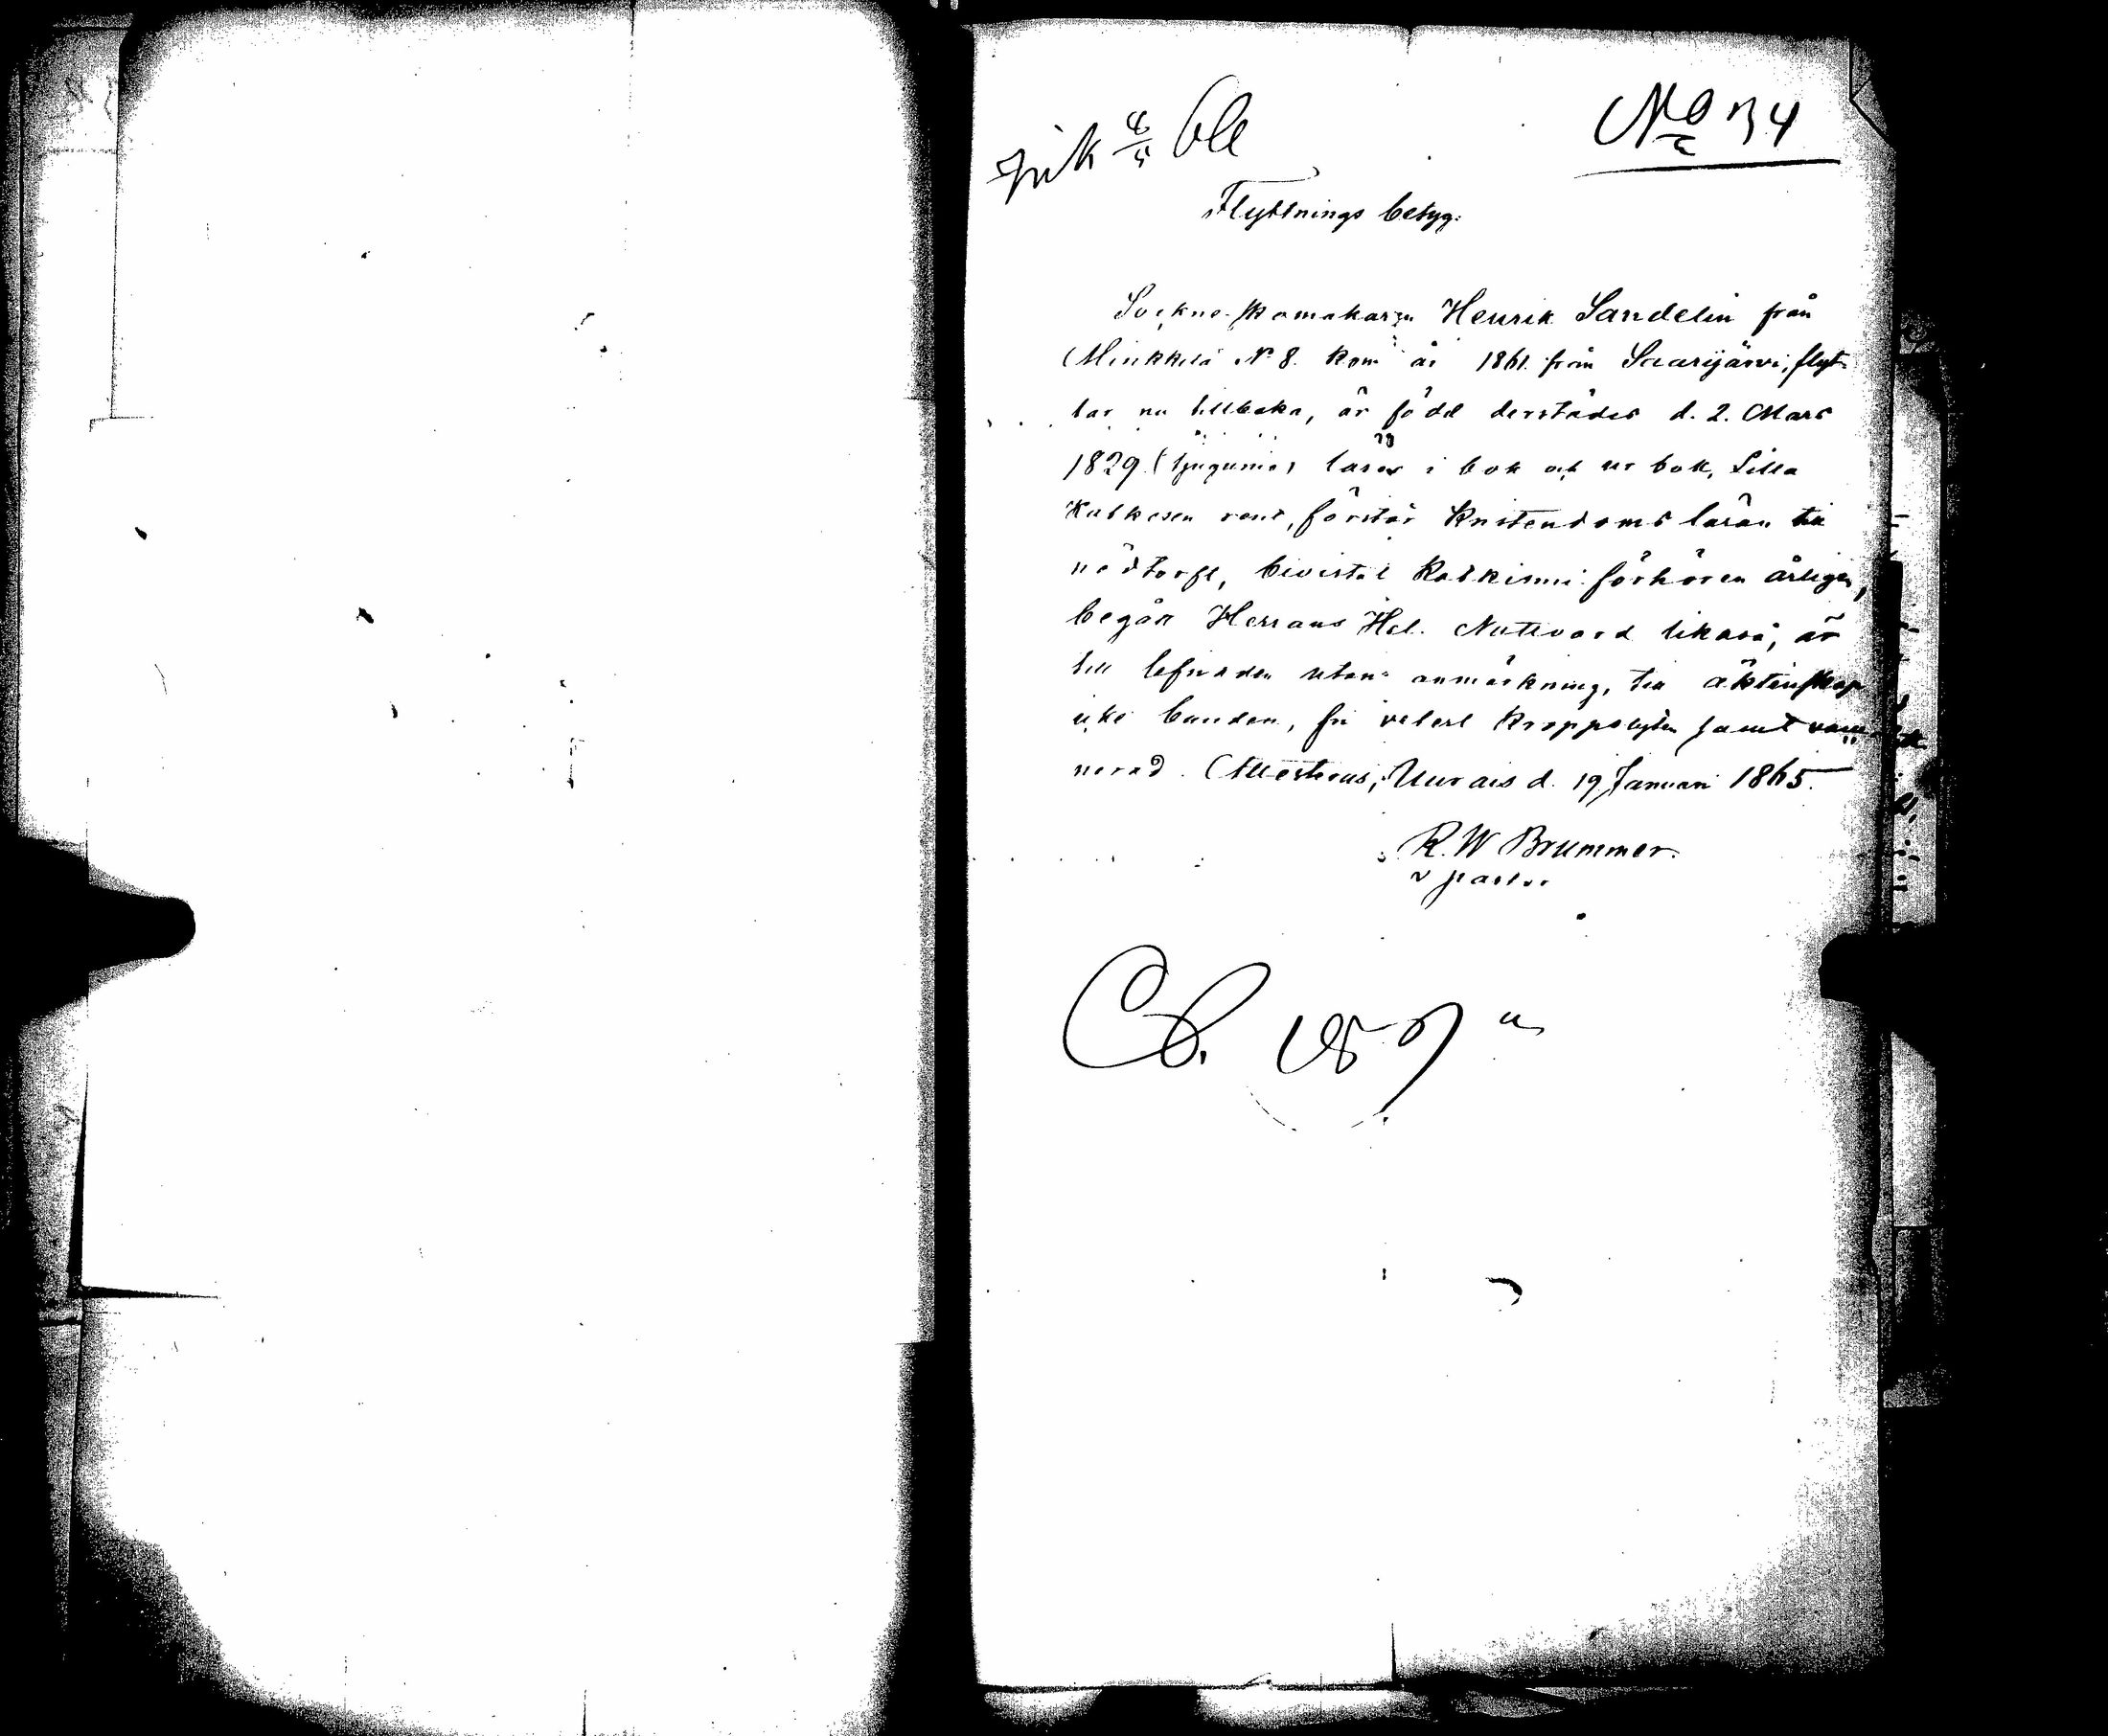 Ink 4/5 66
No 34
Flyttnings betyg.
Sockne skomakaren Henrik Sandelin från
Minkkilä N. 8. kom år 1861 från Saarijärvi, flyt-
tar nu tillbaka, är född derstädes d. 2. Mars
1829 (tjugunio) läser i bok och ur bok, Lilla
Katkesen rent, förstår Kristendoms läran till
nödtorft, bevistat Katkismi förhören årligen,
begått Herrans Hel. Nattvard likaså, är
till lefnaden utan anmärkning, till äktenskap
icke bunden, fri velat kroppslyten samt vacci-
nerad. Attesteras, Uurais d. 19 Januari 1865.
R. W Brummer.
v pastor